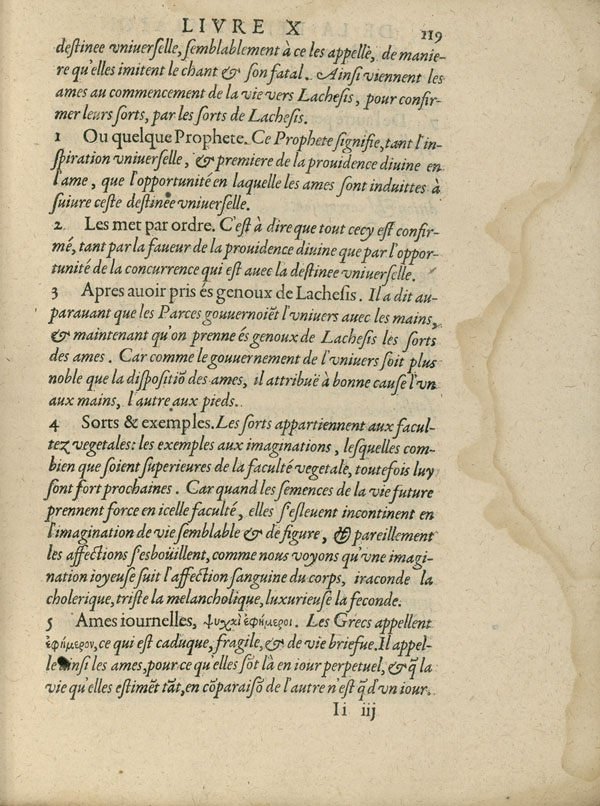 LIVRE X 119
destinee vniuerselle, semblablement à ce les appelle, de manie-
re qu'elles imitent le chant & son fatal. Ainsi viennent les
ames au commencement de la vie vers Lachesis, pour confir-
mer leurs sorts, par les sorts de Lachesis.
1 Ou quelque Prophete. Ce Prophete signifie, tant l'in-
spiration vniuerselle, & premiere de la prouidence diuine en
l'ame, que l'opportunité en laquelle les ames sont induittes à
suiure ceste destinée vniuerselle.
2 Les met par ordre. C'est à dire que tout cecy est confir-
mé, tant par la faueur de la prouidence diuine que par l'oppor-
tunité de la concurrence qui est auec la destinee vniuerselle.
3 Apres auoir pris és genoux de Lachesis. Il a dit au-
parauant que les Parces gouuernoiẽt l'vniuers auec les mains,
& maintenant qu'on prenne és genoux de Lachesis les sorts
des ames. Car comme le gouuernement de l'vniuers soit plus
noble que la dispositiõ des ames, il attribuë à bonne cause l'vn
aux mains, l'autre aux pieds.
4 Sorts & exemples. Les sorts appartiennent aux facul-
tez vegetales: les exemples aux imaginations, lesquelles com-
bien que soient superieures de la faculté vegetale, toutefois luy
sont fort prochaines. Car quand les semences de la vie future
prennent force en icelle faculté, elles s'esleuent incontinent en
l'imagination de vie semblable & de figure, & pareillement
les affections s'esboüillent, comme nous voyons qu'vne imagi-
nation ioyeuse suit l'affection sanguine du corps, iraconde la
cholerique, triste la melancholique, luxurieuse la feconde.
5 Ames iournelles, ψυχαὶ ἐφήμεροι. Les Grecs appellent
ἐφήμερον, ce qui est caduque, fragile, & de vie briefue. Il appel-
le ainsi les ames, pour ce qu'elles sõt là en iour perpetuel, & q̃ la
vie qu'elles estimẽt tãt, en cõparaisõ de l'autre n'est q̃ d'vn iour.
Ii iij